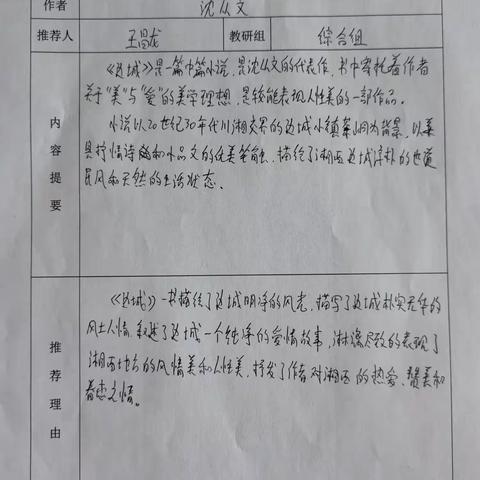 作者 沈从文
推荐人 王昌龙 教研组 综合组
内容提要
《边城》是一篇中篇小说,是沈从文的代表作,书中寄托着作者
关于"美"与"爱"的美学理想,是较能表现人性美的一部作品。
小说以20世纪30年代川湘交界的边城小镇茶峒为背景,以兼
具抒情诗和小品文的优美笔触,描绘了湘西边城淳朴的世道
民风和天然的生活状态.
推荐理由
《边城》一书描绘了边城明净的风光,描写了边城朴实无华的
风土人情,叙述了边城一个纯净的爱情故事,淋漓尽致的表现了
湘西地方的风情美和人性美,抒发了作者对湘西的热爱、赞美和
眷恋之情。